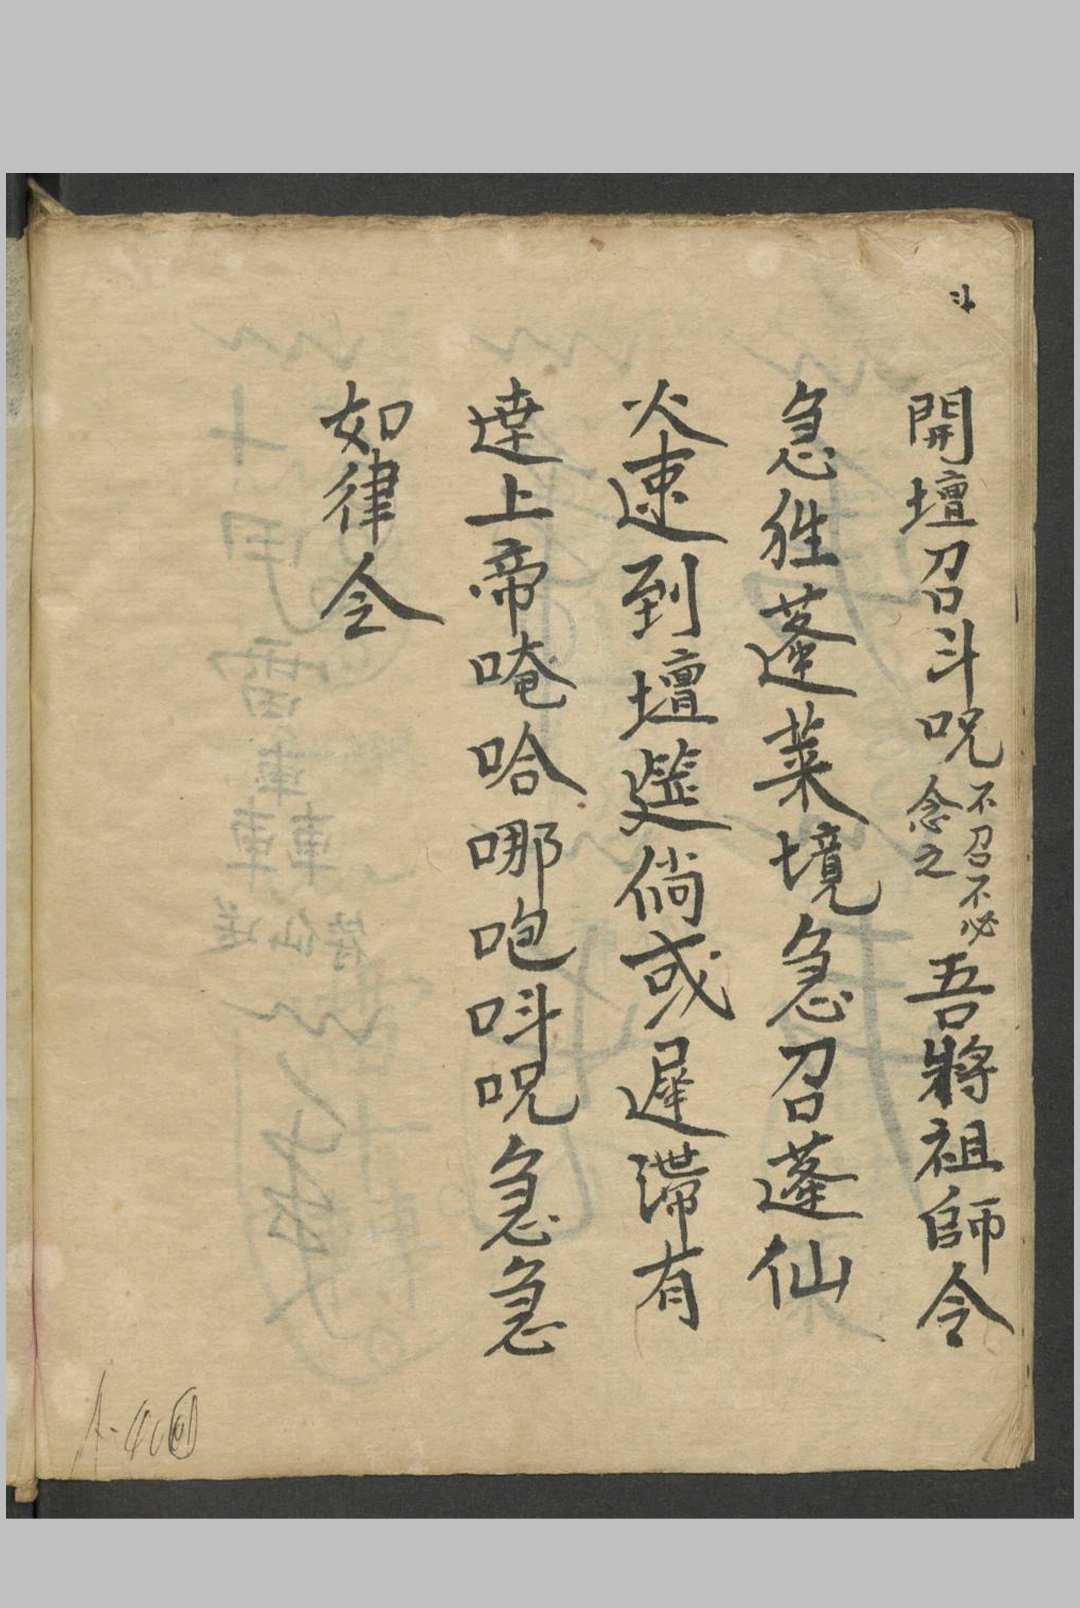 斗
開壇召斗呪
不召不必
念之
吾將祖師令
急徃蓬萊境急召蓬仙
火速到壇筵倘或遲滯有
違上帝唵哈哪咆呌呪急急
如律令